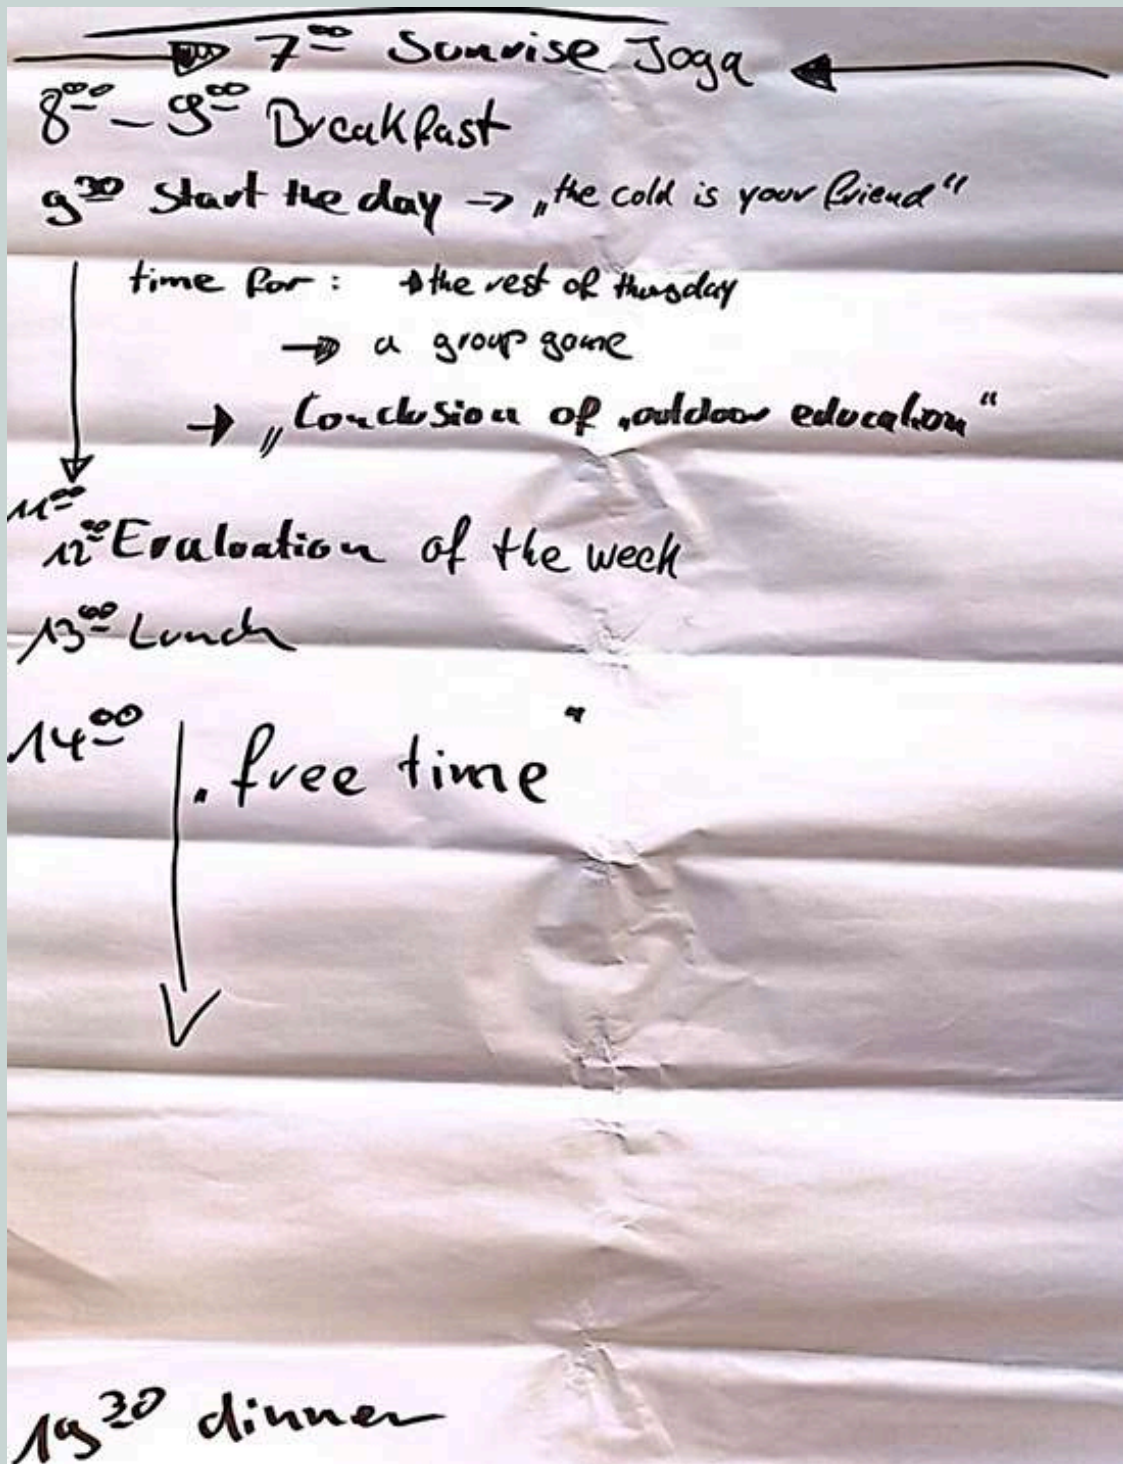 7⁰⁰ Sunrise Joga
8⁰⁰ – 9⁰⁰ Breakfast
9³⁰ Start the day → „the cold is your friend“
time for: → the rest of thursday
→ a group game
→ „Conclusion of „outdoor education“
11⁰⁰
12⁰⁰ Evaluation of the week
13⁰⁰ Lunch
14⁰⁰ „free time“
19³⁰ dinner